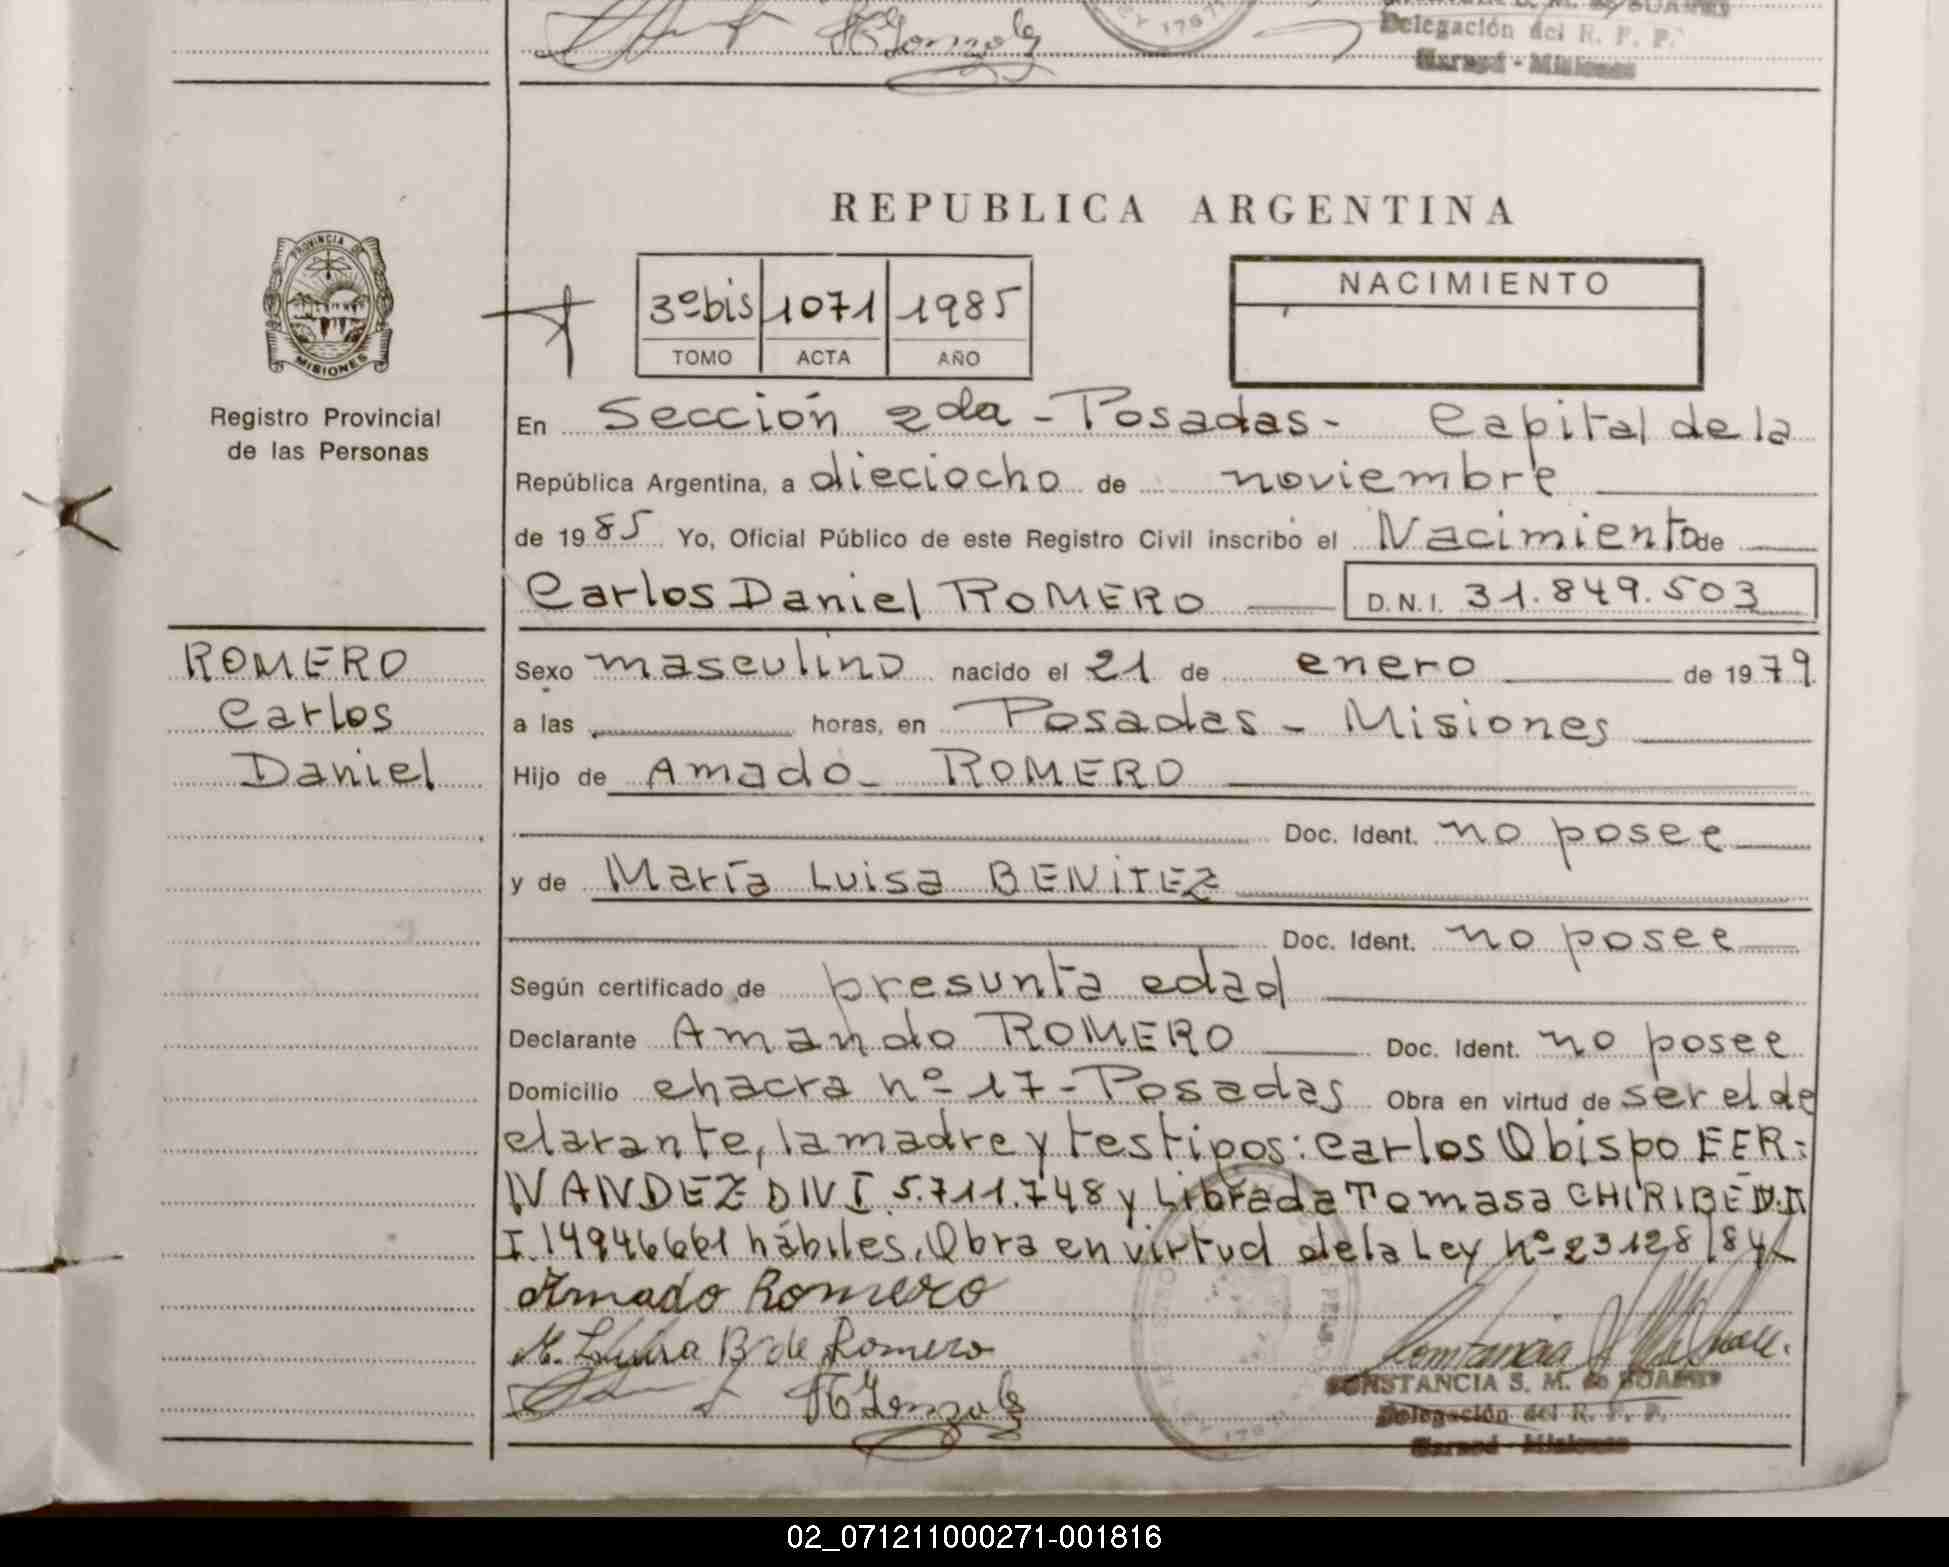 Delegación del R. P. P.
REPUBLICA ARGENTINA
PROVINCIA DE
MISIONES
Registro Provincial
de las Personas
3º bis 1071 1985
TOMO ACTA AÑO
NACIMIENTO
En Sección 2da - Posadas - Capital de la
República Argentina, a dieciocho de noviembre
de 1985 Yo, Oficial Público de este Registro Civil inscribo el Nacimiento de
Carlos Daniel ROMERO D.N.I. 31.849.503
ROMERO
Carlos
Daniel
Sexo masculino nacido el 21 de enero de 1979
a las horas, en Posadas - Misiones
Hijo de Amado - ROMERO
Doc. Ident. no posee
y de María Luisa BENITEZ
Doc. Ident. no posee
Según certificado de presunta edad
Declarante Amando ROMERO Doc. Ident. no posee
Domicilio chacra nº 17 - Posadas Obra en virtud de ser el de
clarante, la madre y testigos: Carlos Obispo FER-
NANDEZ DNI 5.711.748 y Librada Tomasa CHIRIBE D.N
I. 14946661 hábiles. Obra en virtud de la Ley nº 23128/84
Amado Romero
M. Luisa B de Romero
CONSTANCIA S. M. de
Delegación del R. P. P.
02_071211000271-001816